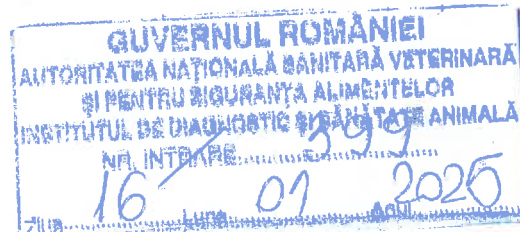 GUVERNUL ROMÂNIEI
AUTORITATEA NAȚIONALĂ SANITARĂ VETERINARĂ
ȘI PENTRU SIGURANȚA ALIMENTELOR
INSTITUTUL DE DIAGNOSTIC ȘI SĂNĂTATE ANIMALĂ
NR. INTRARE 399
ZIUA 16 Luna 01 Anul 2025